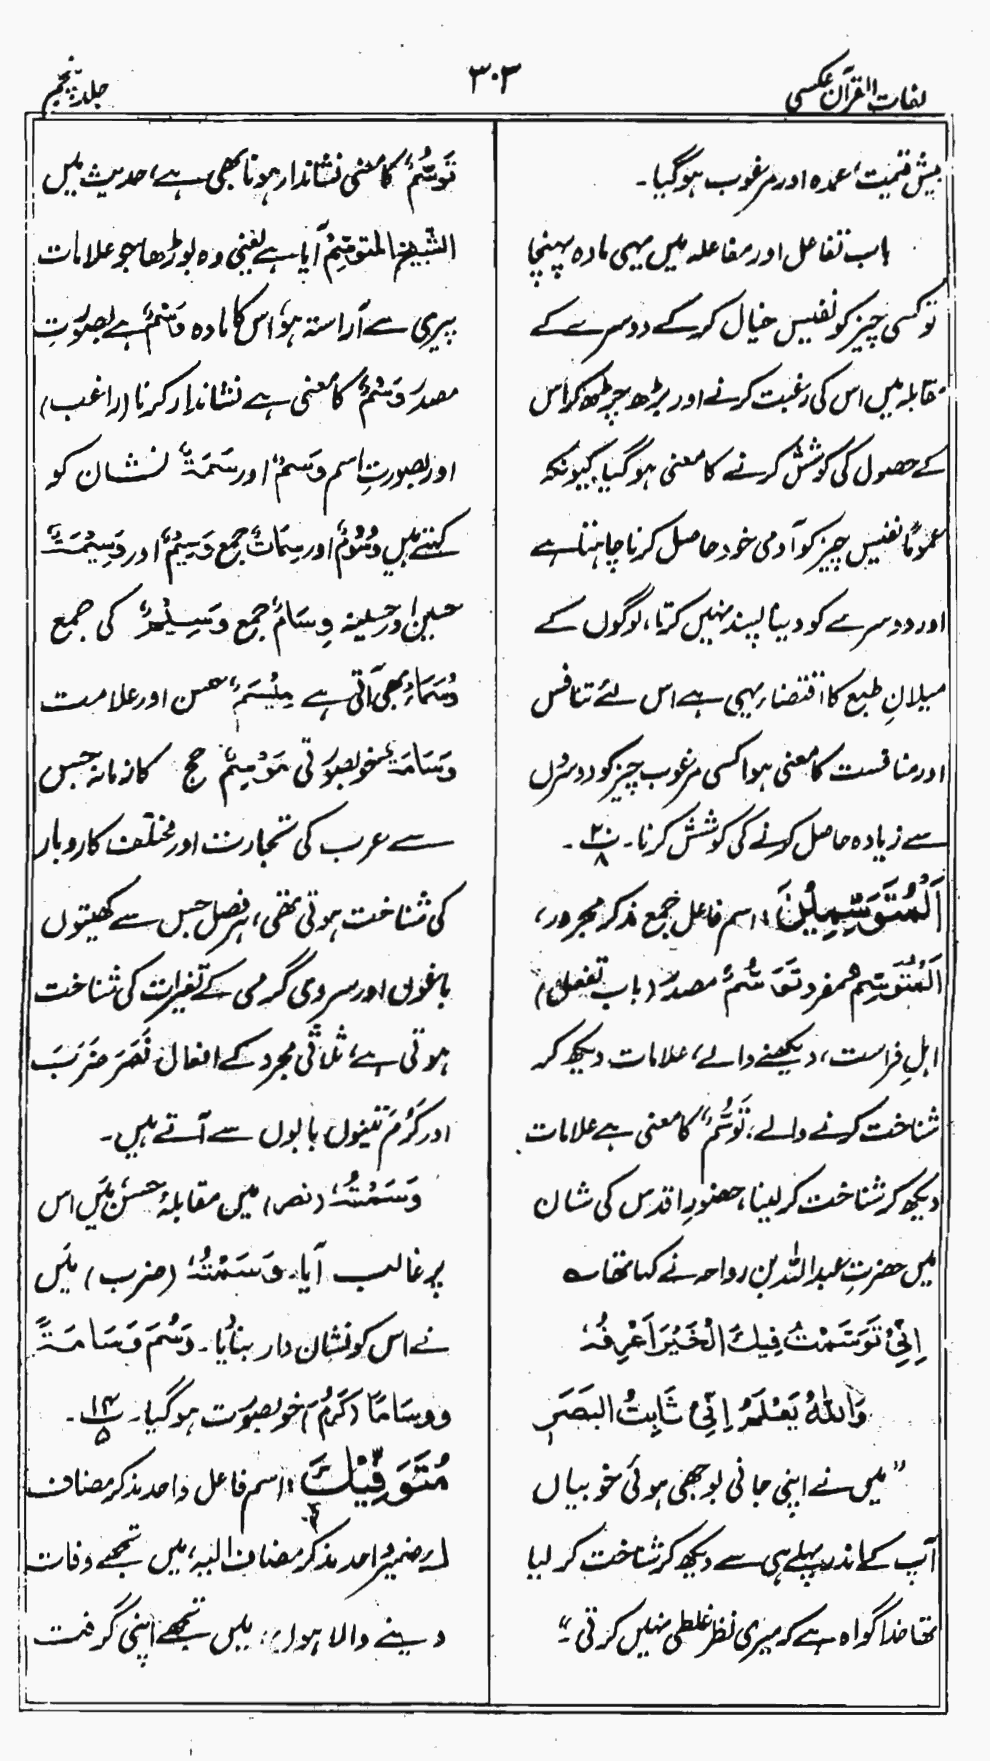 لغات القرآن عکسی
۳۰۳
جلد پنجم
بیش قیمت، عمدہ اور مرغوب ہوگیا۔
باب تفاعل اور مفاعلہ میں یہی مادہ پہنچا
تو کسی چیز کو نفیس خیال کرکے دوسرے کے
مقابلہ میں اس کی رغبت کرنے اور بڑھ چڑھ کر اس
کے حصول کی کوشش کرنے کا معنی ہوگیا کیونکہ
عموماً نفیس چیز کو آدمی خود حاصل کرنا چاہتا ہے
اور دوسرے کو دینا پسند نہیں کرتا، لوگوں کے
میلانِ طبع کا اقتضاء یہی ہے اس لئے تنافس
اور منافست کا معنی ہوا کسی مرغوب چیز کو دوسروں
سے زیادہ حاصل کرنے کی کوشش کرنا۔ پ۳۰ ۸۔
اَلْمُتَوَسِّمِیْنَ: اسم فاعل جمع مذکر مجرور،
اَلْمُتَوَسِّمُ مفرد تَوَسُّمٌ مصدر (باب تفعل)
اہلِ فراست، دیکھنے والے، علامات دیکھ کر
شناخت کرنے والے، تَوَسُّمٌ کا معنی ہے علامات
دیکھ کر شناخت کرلینا، حضورِ اقدس کی شان
میں حضرت عبداللہ بن رواحہ نے کہا تھا ؎
اِنِّیْ تَوَسَّمْتُ فِیْكَ الْخَیْرَ اَعْرِفُہٗ
وَاللّٰہُ یَعْلَمُ اِنِّیْ ثَابِتُ الْبَصَرِ
"میں نے اپنی جانی بوجھی ہوئی خوبیاں
آپ کے اندر پہلے ہی سے دیکھ کر شناخت کر لیا
تھا خدا گواہ ہے کہ میری نظر غلطی نہیں کرتی۔"
تَوَسُّمٌ کا معنی نشاندار ہونا بھی ہے، حدیث میں
الشَّیْخُ الْمُتَوَسِّمُ آیا ہے یعنی وہ بوڑھا جو علامات
پیری سے آراستہ ہو، اس کا مادہ وَسْمٌ ہے بصورتِ
مصدر وَسْمٌ کا معنی ہے نشاندار کرنا (راغب)
اور بصورتِ اسم وَسْمٌ اور سَمَۃٌ نشان کو
کہتے ہیں وُسُوْمٌ اور سِمَاتٌ جمع وَسِیْمٌ اور وَسِیْمَۃٌ
حسین اور حسینہ وِسَامٌ جمع وَسِیْمٌ کی جمع
وُسَمَاءُ بھی آتی ہے مِیْسَمٌ حسن اور علامت
وَسَامَۃٌ خوبصورتی مَوْسِمٌ حج کا زمانہ جس
سے عرب کی تجارت اور مختلف کاروبار
کی شناخت ہوتی تھی، ہر فصل جس سے کھیتوں
باغوں اور سردی گرمی کے تغیرات کی شناخت
ہوتی ہے، ثلاثی مجرد کے افعال نَصَرَ ضَرَبَ
اور كَرُمَ تینوں بابوں سے آتے ہیں۔
وَسَمْتُہٗ (نصر) میں مقابلۂ حسن میں اس
پر غالب آیا۔ وَسَمْتُہٗ (ضرب) میں
نے اس کو نشان دار بنایا۔ وَسُمَ وَسَامَۃً
و وسامًا (كَرُمَ) خوبصورت ہوگیا۔ پ۱۴ ۵۔
مُتَوَفِّیْكَ: اسم فاعل واحد مذکر مضاف
لَ ضمیر واحد مذکر مضاف الیہ، میں تجھے وفات
دینے والا ہوں، میں تجھے اپنی گرفت